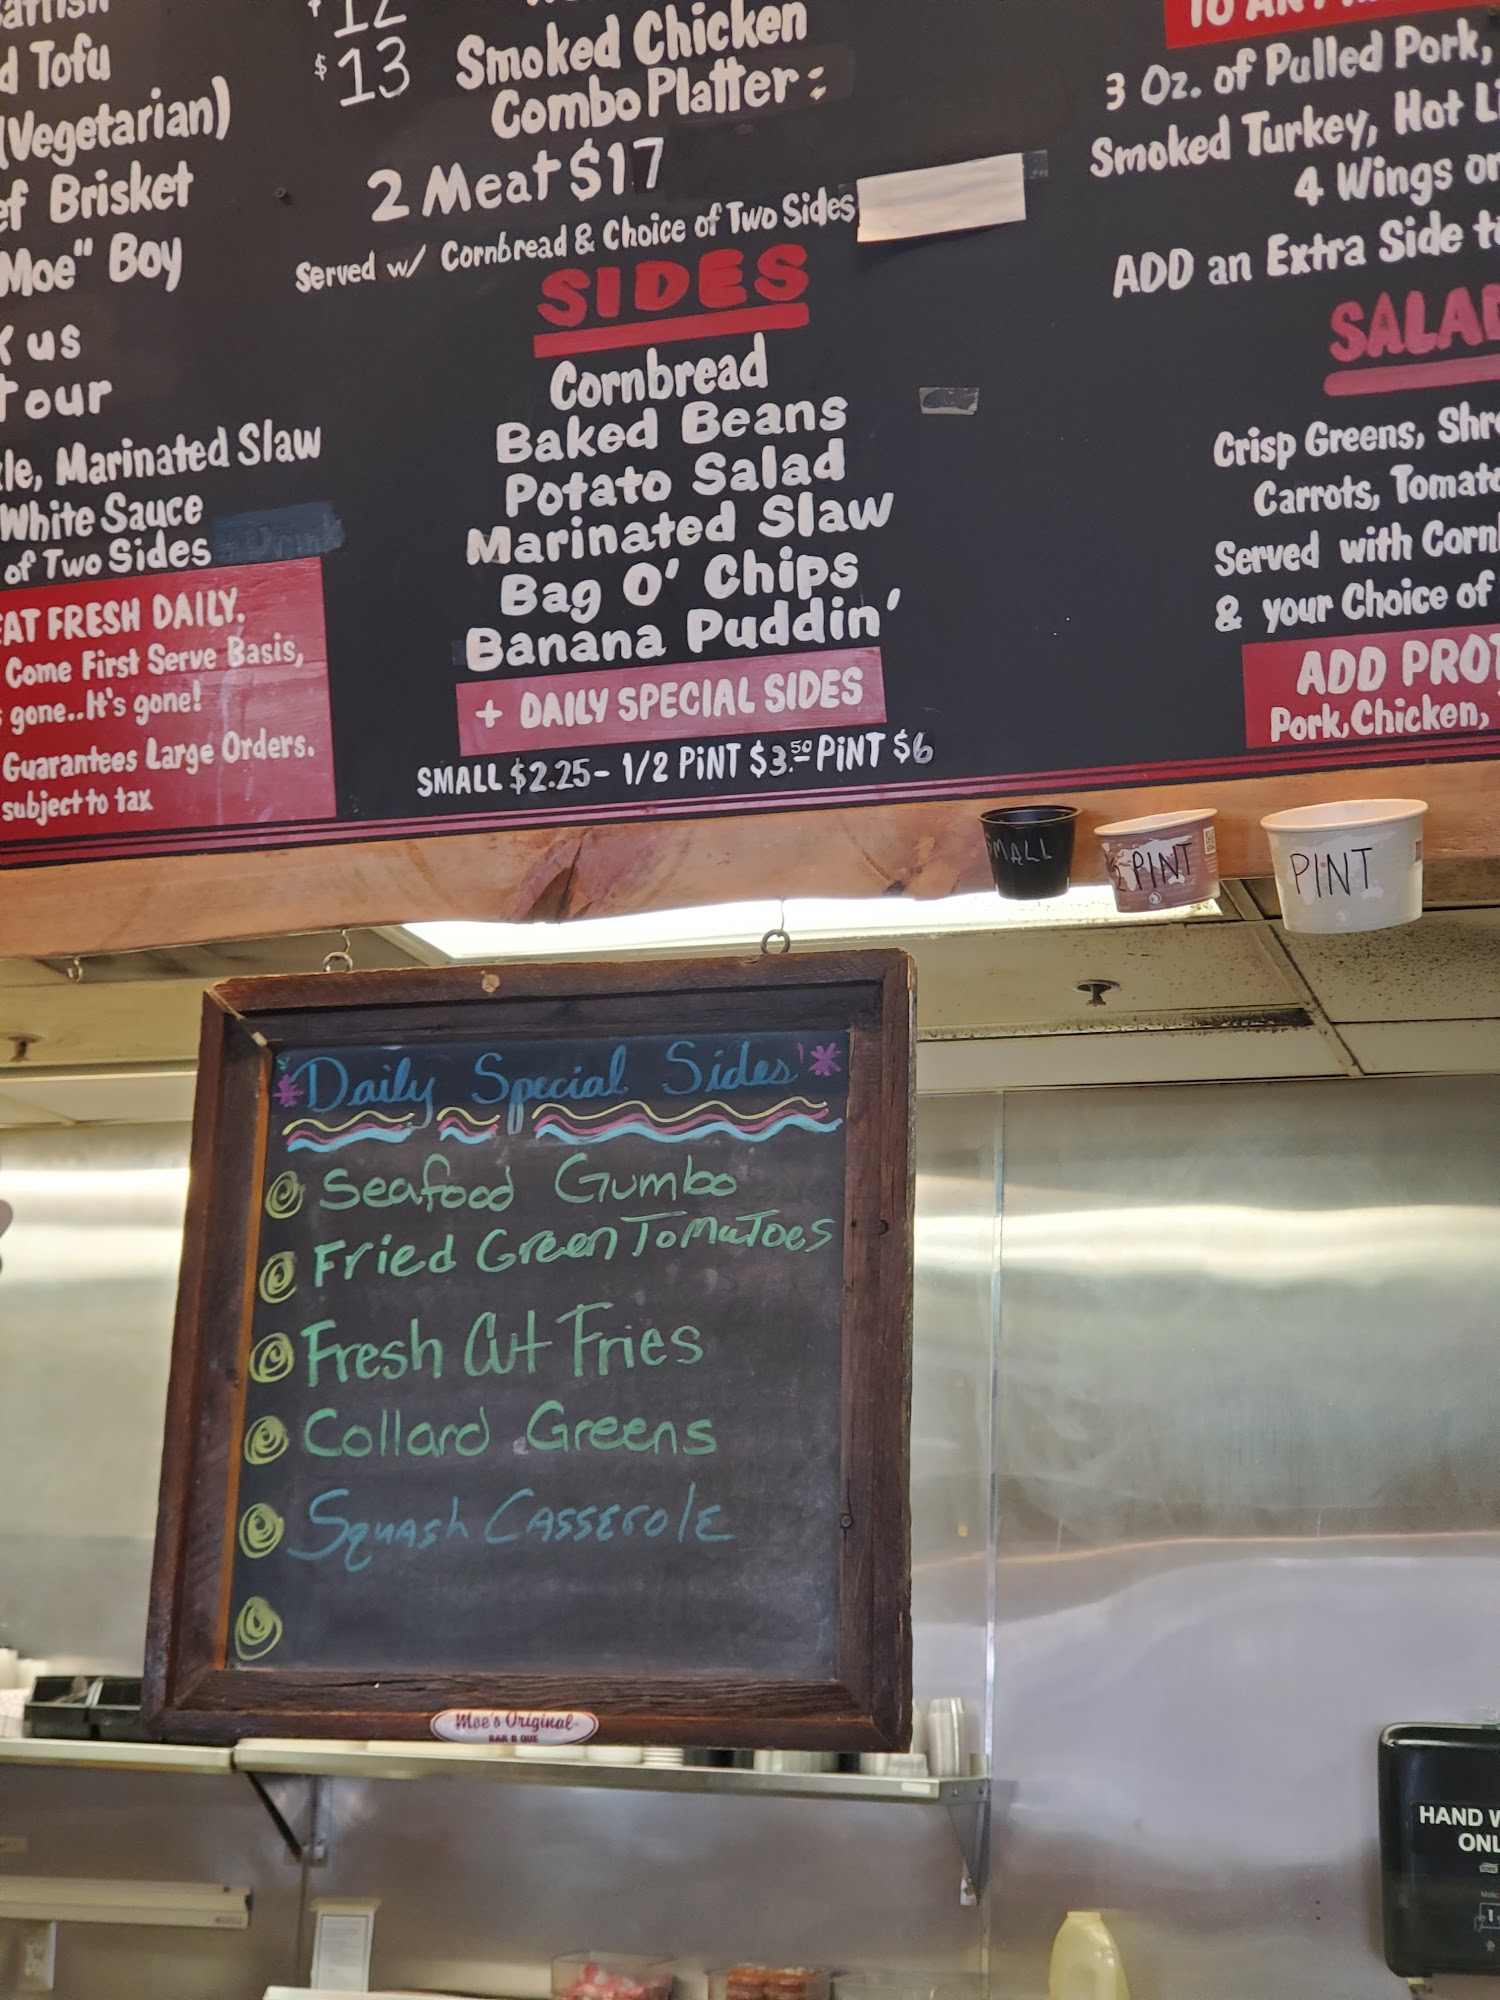 d Tofu
(Vegetarian)
Brisket
Moe" Boy
us
Marinated Slaw
White Sauce
of Two Sides
FRESH DAILY.
Come First Serve Basis,
gone..It's gone!
Guarantees Large Orders.
subject to tax
$12
$13
Smoked Chicken
Combo Platter:
2 Meat $17
Served w/ Cornbread & Choice of Two Sides
SIDES
Cornbread
Baked Beans
Potato Salad
Marinated Slaw
Bag O' Chips
Banana Puddin'
+ DAILY SPECIAL SIDES
SMALL $2.25 - 1/2 PiNT $3.50 PiNT $6
3 Oz. of Pulled Pork,
Smoked Turkey, Hot
4 Wings or
ADD an Extra Side
Crisp Greens,
Carrots,
Served with
& your Choice of
ADD
Pork, Chicken,
SMALL
1/2 PINT
PINT
*Daily Special Sides*
Seafood Gumbo
Fried Green Tomatoes
Fresh Cut Fries
Collard Greens
Squash Casserole
Moe's Original
BAR B QUE
HAND